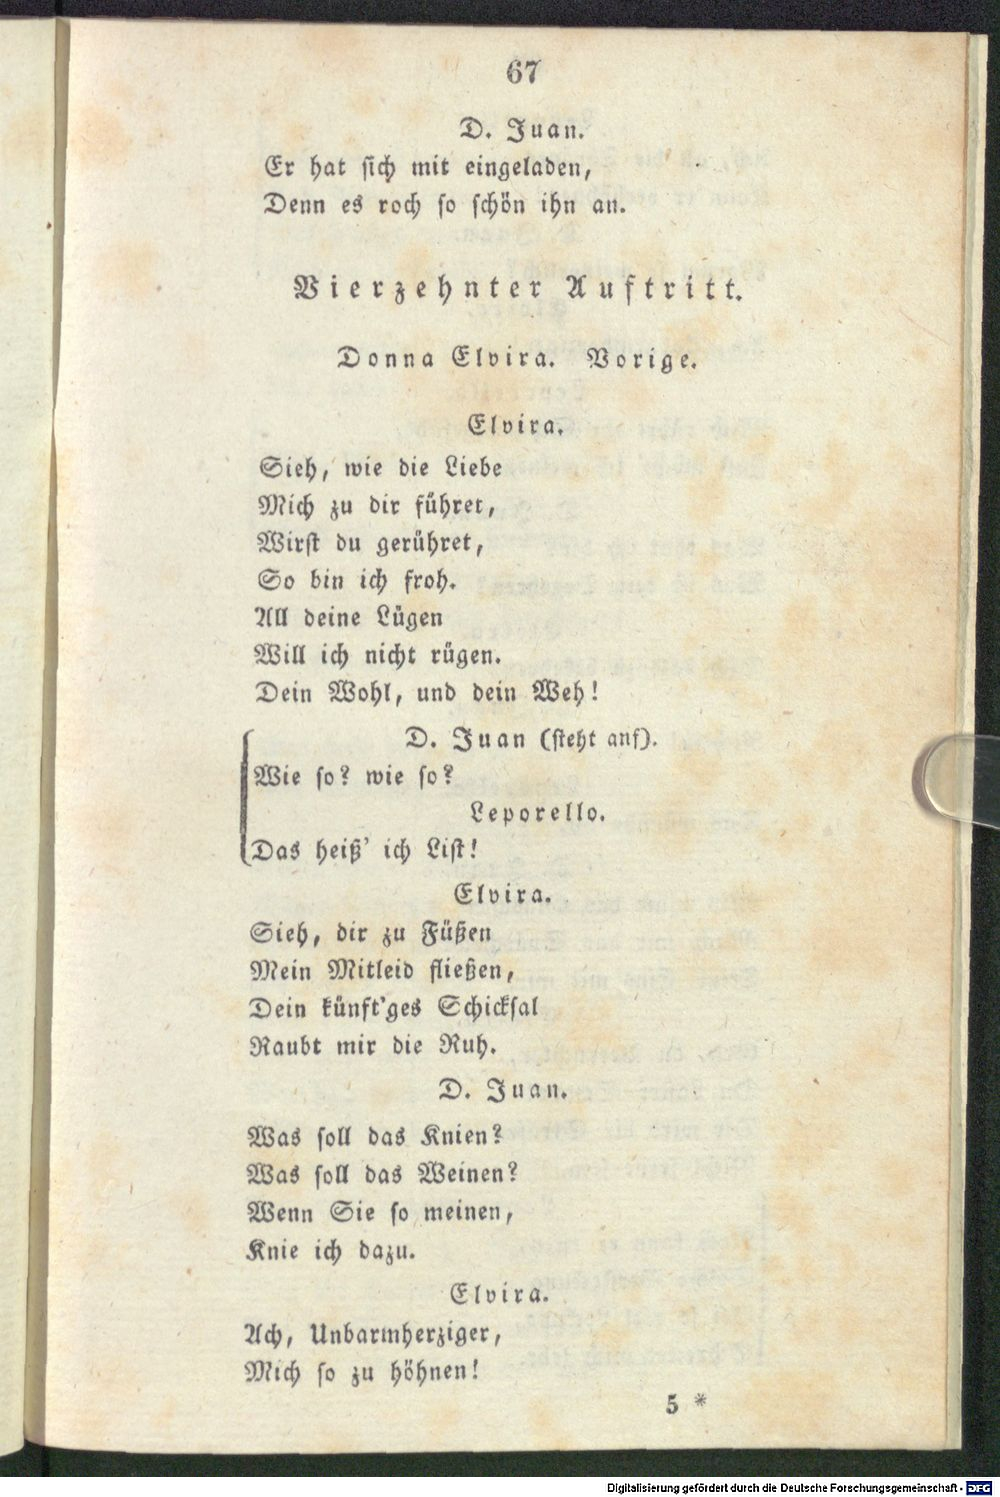 67
D. Juan.
Er hat sich mit eingeladen,
Denn es roch so schön ihn an.
Vierzehnter Auftritt.
Donna Elvira. Vorige.
Elvira.
Sieh, wie die Liebe
Mich zu dir führet,
Wirst du gerühret,
So bin ich froh.
All deine Lügen
Will ich nicht rügen.
Dein Wohl, und dein Weh!
D. Juan (steht anf).
Wie so? wie so?
Leporello.
Das heiß' ich List!
Elvira.
Sieh, dir zu Füßen
Mein Mitleid fließen,
Dein künft'ges Schicksal
Raubt mir die Ruh.
D. Juan.
Was soll das Knien?
Was soll das Weinen?
Wenn Sie so meinen,
Knie ich dazu.
Elvira.
Ach, Unbarmherziger,
Mich so zu höhnen!
5 *
Digitalisierung gefördert durch die Deutsche Forschungsgemeinschaft - DFG